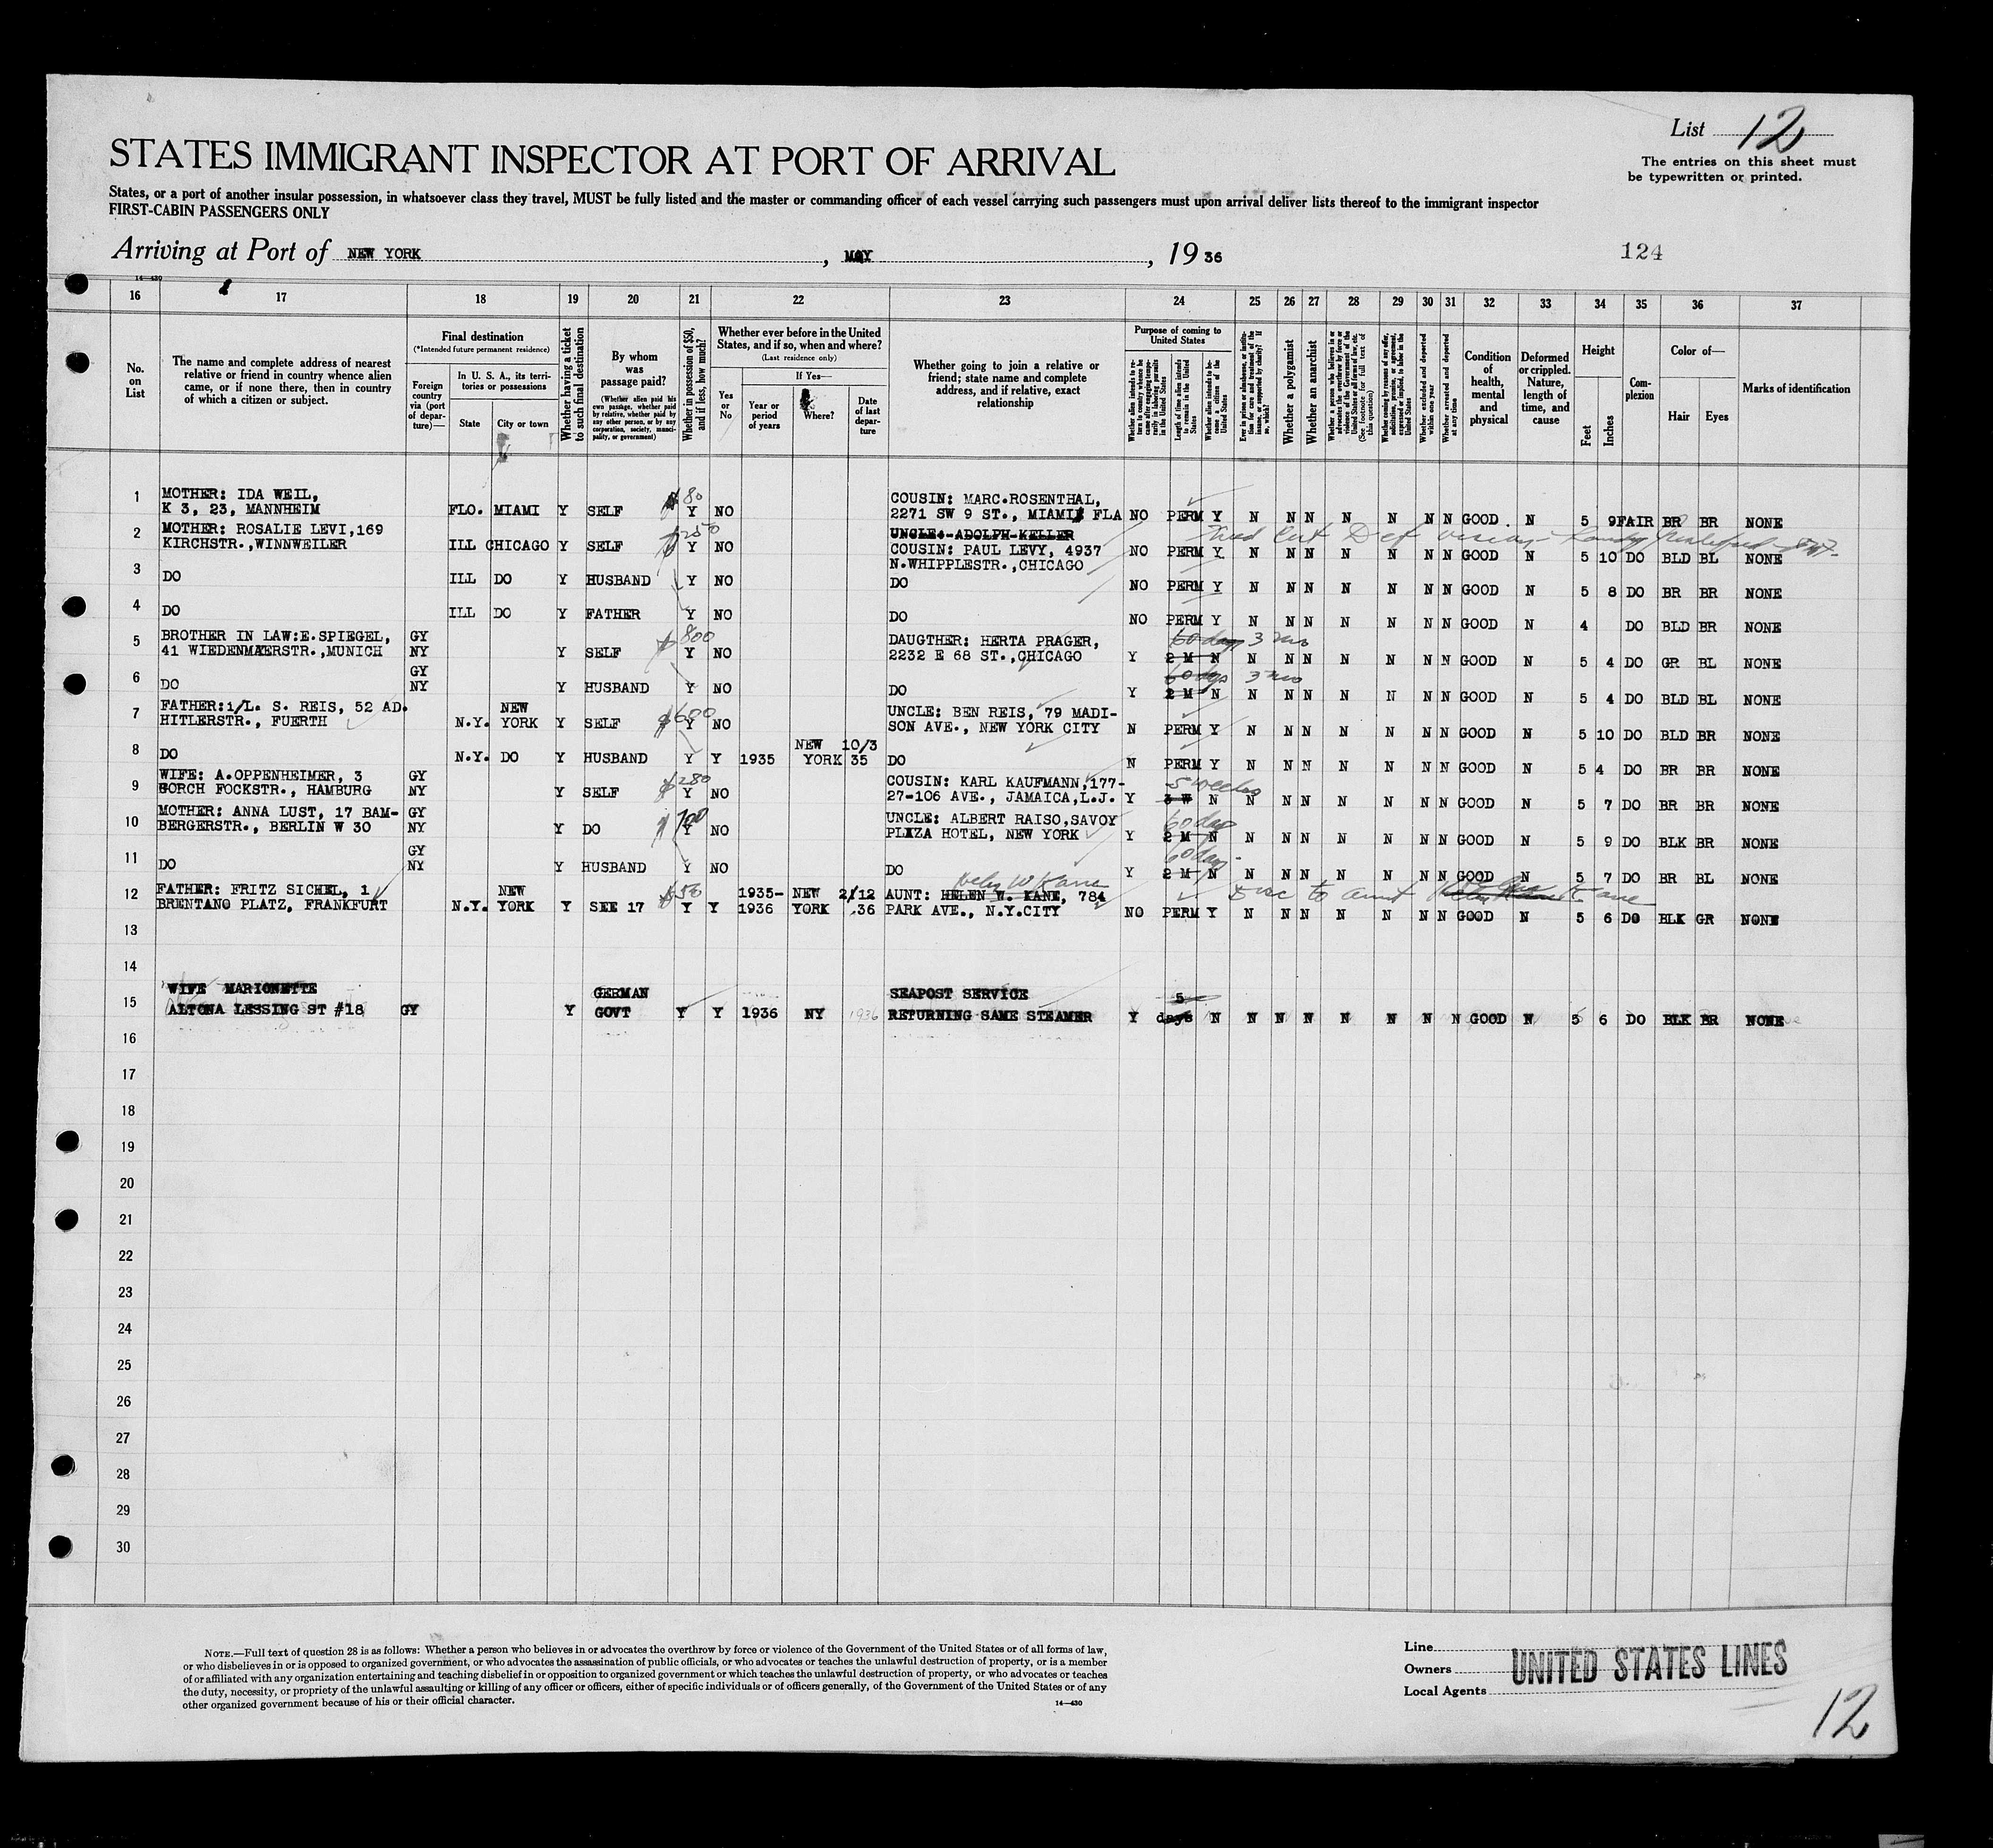 List 12
The entries on this sheet must
be typewritten or printed.
STATES IMMIGRANT INSPECTOR AT PORT OF ARRIVAL
States, or a port of another insular possession, in whatsoever class they travel, MUST be fully listed and the master or commanding officer of each vessel carrying such passengers must upon arrival deliver lists thereof to the immigrant inspector
FIRST-CABIN PASSENGERS ONLY
Arriving at Port of NEW YORK, MAY, 19 36
124
14—430
16 17 18 19 20 21 22 23 24 25 26 27 28 29 30 31 32 33 34 35 36 37
No. on List
The name and complete address of nearest relative or friend in country whence alien came, or if none there, then in country of which a citizen or subject.
Final destination
(*Intended future permanent residence)
Foreign country via (port of departure)—
In U. S. A., its territories or possessions
State
City or town
Whether having a ticket to such final destination
By whom was passage paid?
(Whether alien paid his own passage, whether paid by relative, whether paid by any other person, or by any corporation, society, municipality, or government)
Whether in possession of $50, and if less, how much?
Whether ever before in the United States, and if so, when and where?
(Last residence only)
Yes or No
If Yes—
Year or period of years
Where?
Date of last departure
Whether going to join a relative or friend; state name and complete address, and if relative, exact relationship
Purpose of coming to United States
Whether a polygamist
Whether an anarchist
Condition of health, mental and physical
Deformed or crippled. Nature, length of time, and cause
Height
Feet
Inches
Complexion
Color of—
Hair
Eyes
Marks of identification
1 MOTHER: IDA WEIL, $80 COUSIN: MARC.ROSENTHAL,
K 3, 23, MANNHEIM FLO. MIAMI Y SELF Y NO 2271 SW 9 ST., MIAMI FLA NO PERM Y N N N N N N N GOOD N 5 9 FAIR BR BR NONE
2 MOTHER: ROSALIE LEVI,169 $250 UNCLE: ADOLPH KELLER
KIRCHSTR.,WINNWEILER ILL CHICAGO Y SELF Y NO COUSIN: PAUL LEVY, 4937 NO PERM Y N N N N N N N GOOD N 5 10 DO BLD BL NONE
N.WHIPPLESTR.,CHICAGO
3 DO ILL DO Y HUSBAND Y NO DO NO PERM Y N N N N N N N GOOD N 5 8 DO BR BR NONE
4 DO ILL DO Y FATHER Y NO DO NO PERM Y N N N N N N N GOOD N 4 DO BLD BR NONE
5 BROTHER IN LAW:E.SPIEGEL, GY $800 DAUGTHER: HERTA PRAGER, 60 days 3 mo
41 WIEDENMAERSTR.,MUNICH NY Y SELF Y NO 2232 E 68 ST.,CHICAGO Y 2 M N N N N N N N N GOOD N 5 4 DO GR BL NONE
6 GY 60 days 3 mo
DO NY Y HUSBAND Y NO DO Y 2 M N N N N N N N N GOOD N 5 4 DO BLD BL NONE
7 FATHER:i/L. S. REIS, 52 AD. NEW $600 UNCLE: BEN REIS, 79 MADI-
HITLERSTR., FUERTH N.Y. YORK Y SELF Y NO SON AVE., NEW YORK CITY N PERM Y N N N N N N N GOOD N 5 10 DO BLD BR NONE
8 NEW 10/3
DO N.Y. DO Y HUSBAND Y Y 1935 YORK 35 DO N PERM Y N N N N N N N GOOD N 5 4 DO BR BR NONE
9 WIFE: A.OPPENHEIMER, 3 GY $280 COUSIN: KARL KAUFMANN,177- 5 weeks
GORCH FOCKSTR., HAMBURG NY Y SELF Y NO 27-106 AVE., JAMAICA,L.J. Y 3 W N N N N N N N N GOOD N 5 7 DO BR BR NONE
10 MOTHER: ANNA LUST, 17 BAM- GY $700 UNCLE: ALBERT RAISO,SAVOY 60 days
BERGERSTR., BERLIN W 30 NY Y DO Y NO PLAZA HOTEL, NEW YORK Y 2 M N N N N N N N N GOOD N 5 9 DO BLK BR NONE
11 GY 60 days
DO NY Y HUSBAND Y NO DO Y 2 M N N N N N N N N GOOD N 5 7 DO BR BL NONE
12 FATHER: FRITZ SICHEL, 1 NEW $50 1935- NEW 2/12 AUNT: HELEN W. KANE, 784
BRENTANO PLATZ, FRANKFURT N.Y. YORK Y SEE 17 Y Y 1936 YORK 36 PARK AVE., N.Y.CITY NO PERM Y N N N N N N N GOOD N 5 6 DO BLK GR NONE
13
14
WIFE MARIONETTE GERMAN SEAPOST SERVICE 5
15 ALTONA LESSING ST #18 GY Y GOVT Y Y 1936 NY 1936 RETURNING SAME STEAMER Y days N N N N N N N N GOOD N 5 6 DO BLK BR NONE
16
17
18
19
20
21
22
23
24
25
26
27
28
29
30
NOTE.—Full text of question 28 is as follows: Whether a person who believes in or advocates the overthrow by force or violence of the Government of the United States or of all forms of law,
or who disbelieves in or is opposed to organized government, or who advocates the assassination of public officials, or who advocates or teaches the unlawful destruction of property, or is a member
of or affiliated with any organization entertaining and teaching disbelief in or opposition to organized government or which teaches the unlawful destruction of property, or who advocates or teaches
the duty, necessity, or propriety of the unlawful assaulting or killing of any officer or officers, either of specific individuals or of officers generally, of the Government of the United States or of any
other organized government because of his or their official character.
14—430
Line
Owners UNITED STATES LINES
Local Agents
12